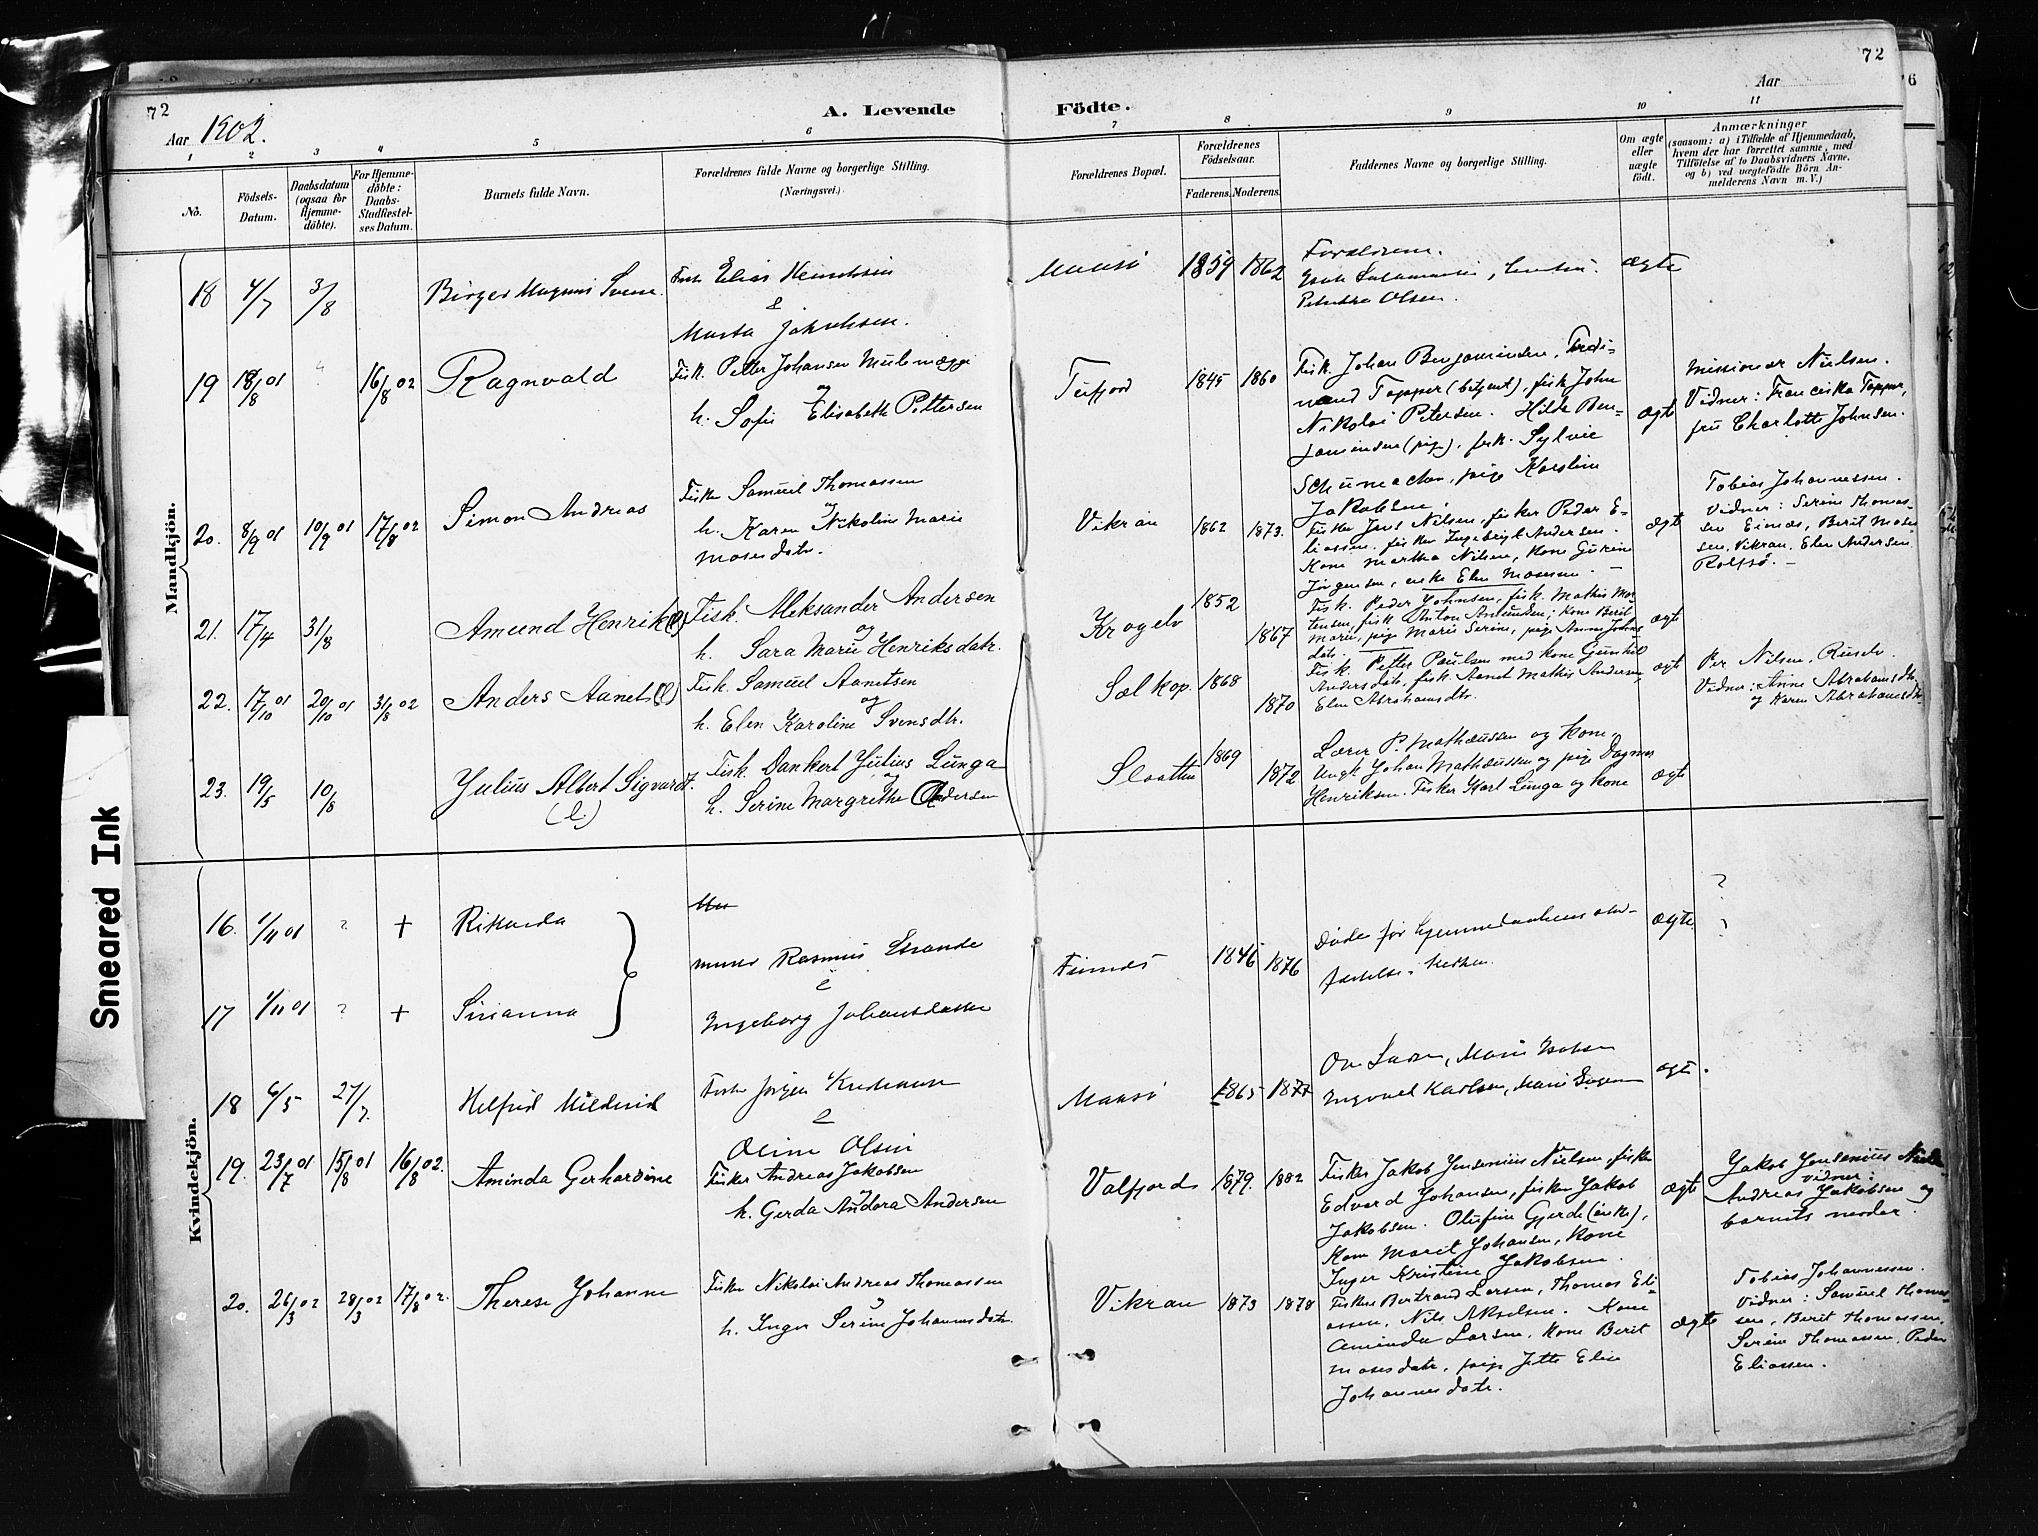 72
72
Aar 1902.
A. Levende Födte.
Aar
1 2 3 4 5 6 7 8 9 10 11
No.
Födsels-
Datum.
Daabsdatum
(ogsaa for
Hjemme-
döbte).
For Hjemme-
döbte:
Daabs-
Stadfæstel-
ses Datum.
Barnets fulde Navn.
Forældrenes fulde Navne og borgerlige Stilling.
(Næringsvei.)
Forældrenes Bopæl.
Forældrenes
Födselsaar.
Faderens. Moderens.
Faddernes Navne og borgerlige Stilling.
Om ægte
eller
uægte
födt.
Anmærkninger
(saasom: a) i Tilfælde af Hjemmedaab,
hvem der har forrettet samme, med
Tilföielse af to Daabsvidners Navne,
og b) ved uægtefödte Börn An-
melderens Navn m. V.)
Mandkjön.
18 4/7 3/8 Birger Magnus
Elias
&
Marta
Maasö 1859 1862
Forældrene.
Olsen.
ægte
19 18/8 01 16/8 02 Ragnvald
Fisk. Petter Johansen
og
h. Sofie Elisabeth Pettersen
Tufjord 1845 1860
Fisk. Johan Benjaminsen, Ferdi-
nand Topper (betjent), fisk John
Nikolai Petersen. Hilda Ben-
jaminsen (pige), frk. Sylvie
Schumacher, pige Karoline
Jakobsen.
ægte
Missionær Nielsen.
Vidner: Franciska Topper,
fru Charlotte Johnsen.
20. 8/9 01 10/9 01 17/8 02 Simon Andreas
Fisker Samuel Thomassen
og
h. Karen Nikoline Marie
Mosesdatr.
Vikran 1862 1873.
Fisker Jens Nilsen, fisker Peder E-
liassen, fisker Ingebrigt Andersen.
Kone Martha Nilsen, Kone Gurine
Jörgensen, enke Elen Mosesen. —
ægt
Tobias Johannessen.
Vidner: Serine Thomas-
sen Eimös, Berit Mose-
sen, Vikran, Elen Andersen
Rolfsö. —
21. 17/4 31/8 Amund Henrik (l)
Fisk. Aleksander Andersen
og
h. Sara Marie Henriksdatr.
Krogelv 1852 1867
Fisk. Peder Johnsen, fisk. Mathis Mor-
tensen, fisk Anton Amundsen; Kone Berit
Marie, pige Marie Serine, pige Anne Johns
datr.
ægt
22. 17/10 01 20/10 01 31/8 02 Anders Aanet (l)
Fisk. Samuel Aanetsen
og
h. Elen Karoline Svensdtr.
Sælkop. 1868 1870
Fisk. Petter Paulsen med kone Gunhil
Andersdatr, fisk. Aanet Mathis Andersen,
Elen Abrahamsdtr.
ægt
Per Nilsen, Ruselv.
Vidner: Anne Abrahamsdtr.
og Karen Abrahamsdtr.
23. 19/5 10/8 Julius Albert Sigvardt.
(l.)
Fisk. Dankert Julius Lunga
og
h. Serine Margrethe Andersen
Slaatten 1869 1872
Lærer P. Mathæussen og Kone
Ungk Johan Mathæussen og pige Dagmar
Henriksen. Fisker Karl Lunga og kone
ægte
Kvindekjön.
16. 1/11 01 ? + Rikarda
17 1/11 01 ? + Sirianna
Murer Rasmus Strande
&
Ingeborg Johansdatter
Finnes 1846 1876
Döde før hjemmedaabens stad-
fæstelse i kirken.
ægte
?
?
18 6/5 27/7. Helfrid Mildrid
Jörgen
&
Oline Olsen
Maasö 1865 1877
Marie
Ingvald Karlsen, Marie
ægt.
19. 23/7 01 15/8 01 16/8 02. Aminda Gerhardine
Fisker Andreas Jakobsen
og
h. Gerda Andora Andersen
Valfjord 1879. 1882
Fisker Jakob Jensenius Nielsen, fisker
Edvard Johansen, fisker Jakob
Jakobsen. Olufine Gjerde (enke),
Kone Marit Johansen, Kone
Inger Kristine Jakobsen.
ægte
Jakob Jensenius Niels
vidner:
Andreas Jakobsen og
barnets moder.
20. 26/3 02 28/3 02 17/8 02. Therese Johanne
Fisker Nikolai Andreas Thomassen
og
h. Inger Serine Johannesdatr.
Vikran 1873 1878
Fisker Bertrand Larsen, Thomas Eli-
assen, Nils Akselsen. Kone
Aminda Larsen, Kone Berit
Mosesdatr, pige Jette Elise
Johannesdatr.
ægte
Tobias Johannessen.
Vidner: Samuel Thomas-
sen, Berit Thomassen,
Serine Thomassen, Peder
Eliassen.
Smeared Ink